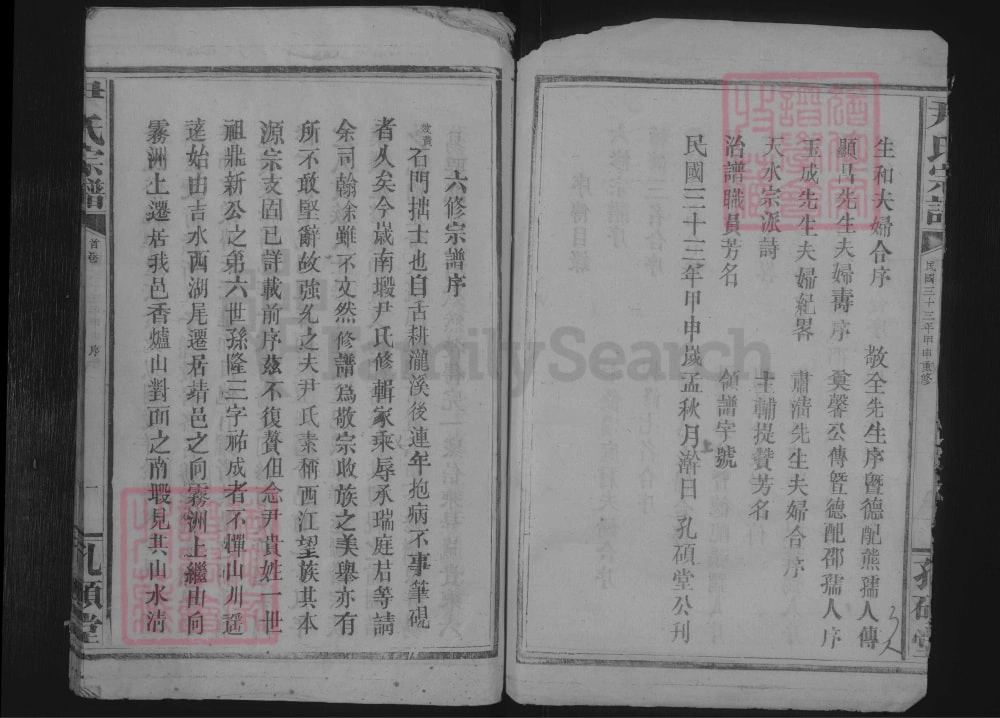 尹氏宗譜
民國三十三年甲申重修
孔碩堂
生和夫婦合序　敬全先生序暨德配熊孺人傳
顯昌先生夫婦壽序　奠馨公傳暨德配邵孺人序
玉成先生夫婦紀畧　肅清先生夫婦合序
天水宗派詩　主輔提贊芳名
治譜職員芳名　領譜字號
民國三十三年甲申歲孟秋月上澣日　孔碩堂公刋
六修宗譜序
石門拙士也自舌耕瀧溪後連年抱病不事筆硯
者久矣今歲南塅尹氏修輯家乘辱承瑞庭等請
余司翰余雖不文然修譜爲敬宗收族之美舉亦有
所不敢堅辭故強允之夫尹氏素稱西江望族其本
源宗支固已詳載前序茲不復贅但念尹貴姓一世
祖鼎新公之弟六世孫隆三字祐成者不憚山川遥
遠始由吉水西湖尾遷居靖邑之向霧洲上繼由向
霧洲上遷居我邑香爐山對面之南塅見其山水清
尹氏宗譜
首卷
序
一
孔碩堂
FamilySearch